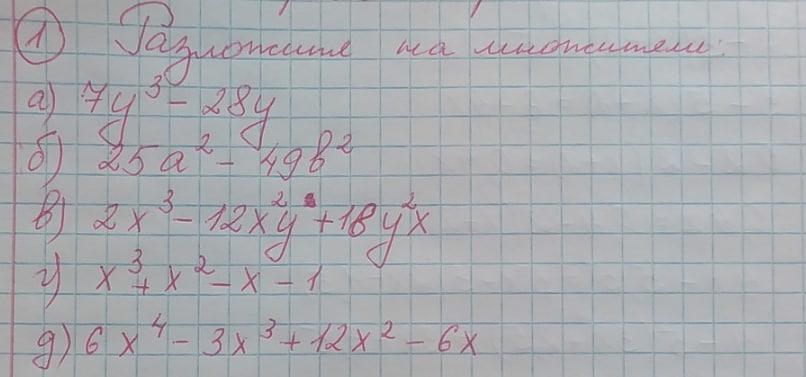 ① Разложите на множители:
а) 7y³ - 28y
б) 25a² - 49b²
в) 2x³ - 12x²y + 18y²x
г) x³ + x² - x - 1
д) 6x⁴ - 3x³ + 12x² - 6x